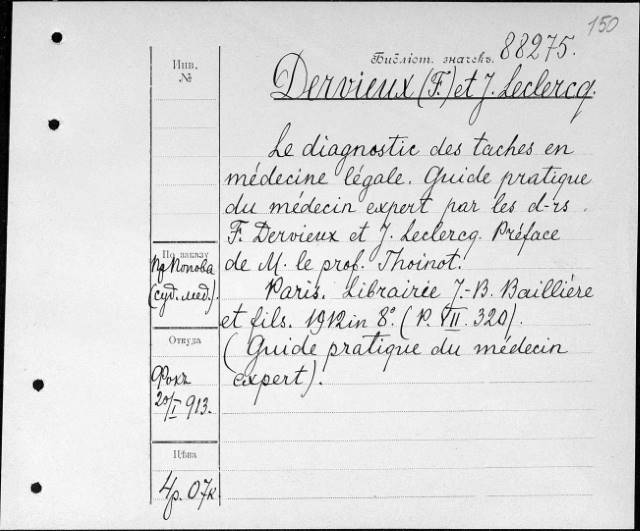 150
Библіот. значекъ. 88275.
Dervieux (F.) et J. Leclercq.
Инв.
№
Le diagnostic des taches en
médecine légale. Guide pratique
du médecin expert par les d-rs.
F. Dervieux et J. Leclercq. Préface
de M. le prof. Thoinot.
Paris. Librairie J.-B. Baillière
et fils. 1912 in 8°. (P. VII. 320).
(Guide pratique du médecin
expert).
По заказу
Пр Попова
(суд. мед.).
Откуда
Фокъ
20/I 913.
Цѣна
4р. 07к